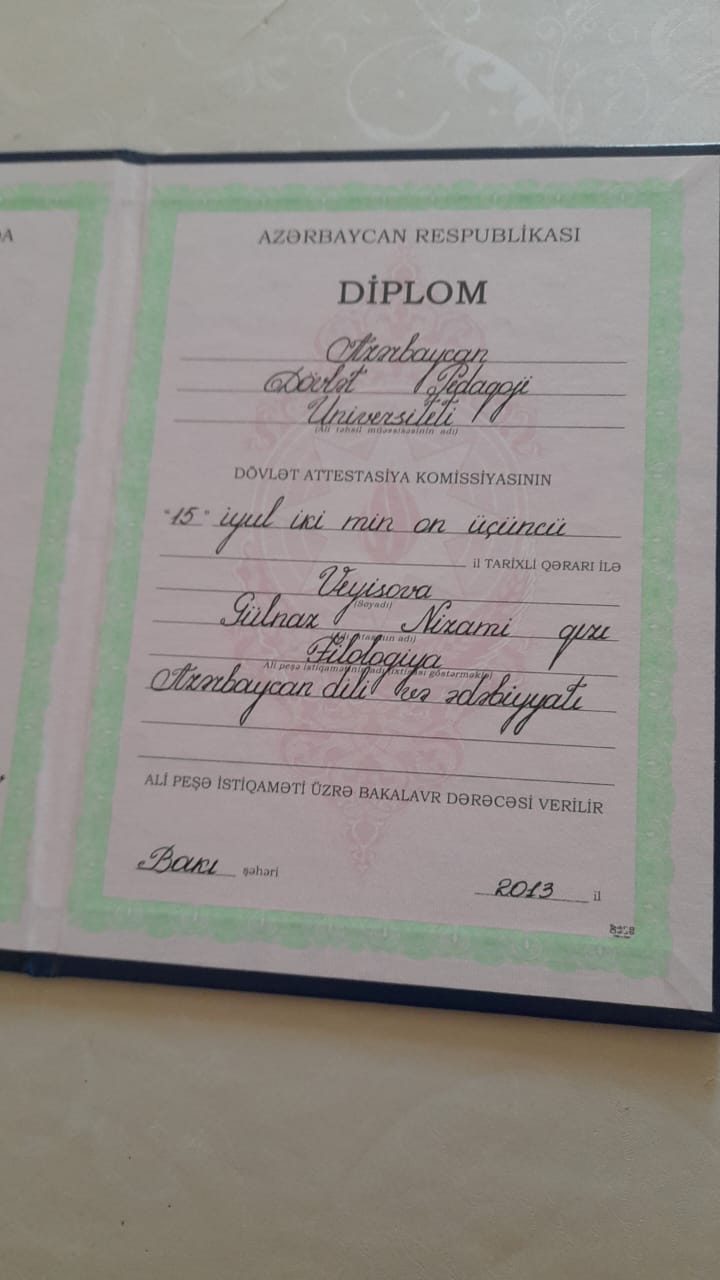 AZƏRBAYCAN RESPUBLİKASI
DİPLOM
Azərbaycan
Dövlət Pedagoji
Universiteti
(Ali təhsil müəssisəsinin adı)
DÖVLƏT ATTESTASİYA KOMİSSİYASININ
"15" iyul iki min on üçüncü
il TARİXLİ QƏRARI İLƏ
Veyisova
(Soyadı)
Gülnaz Nizami qızı
Filologiya
Azərbaycan dili və ədəbiyyatı
ALİ PEŞƏ İSTİQAMƏTİ ÜZRƏ BAKALAVR DƏRƏCƏSİ VERİLİR
Bakı şəhəri
2013 il